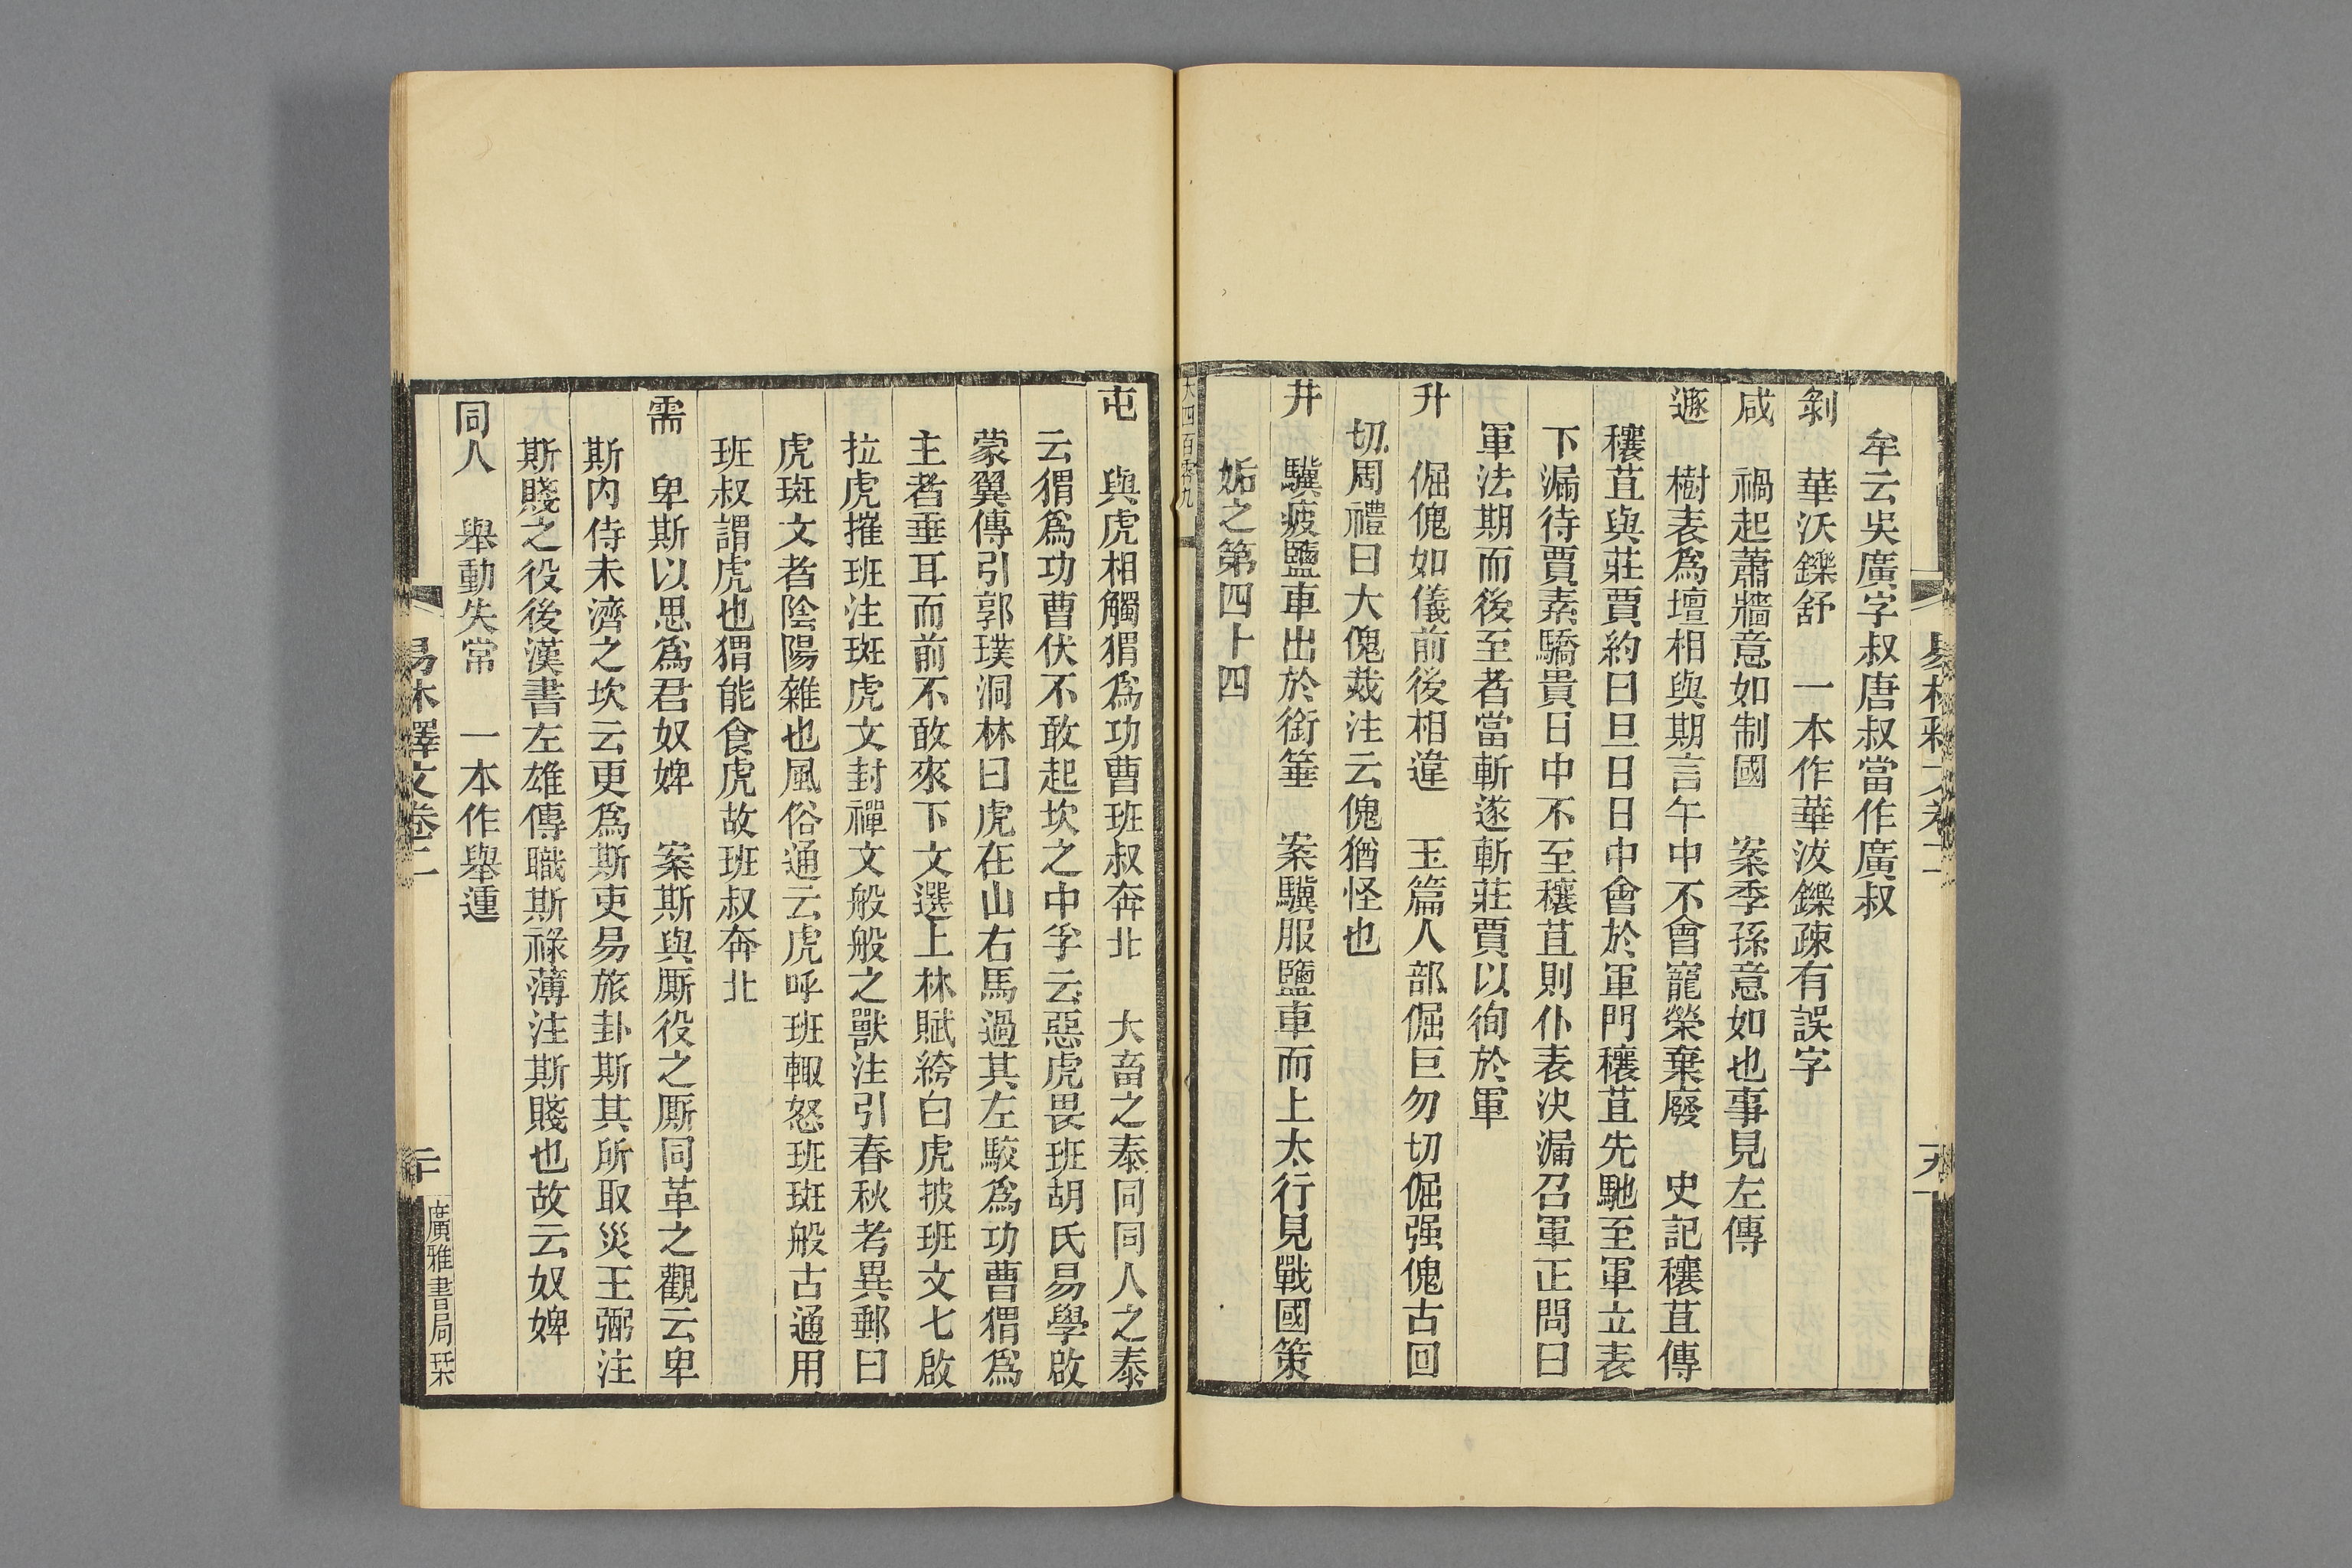 牟云吳廣字叔唐叔當作廣叔
剝　華沃鑠舒　一本作華沷鑠疎有誤字
咸　禍起蕭牆意如制國　案季孫意如也事見左傳
遯　樹表爲壇相與期言午中不會寵榮棄廢　史記穰苴傳
穰苴與莊賈約曰旦日日中會於軍門穰苴先馳至軍立表
下漏待賈素驕貴日中不至穰苴則仆表決漏召軍正問曰
軍法期而後至者當斬遂斬莊賈以徇於軍
升　倔傀如儀前後相違　玉篇人部倔巨勿切倔强傀古回
切周禮曰大傀烖注云傀猶怪也
井　驥疲鹽車出於銜箠　案驥服鹽車而上太行見戰國策
姤之第四十四
大四百零九
屯　與虎相觸猬爲功曹班叔奔北　大畜之泰同同人之泰
云猬爲功曹伏不敢起坎之中孚云惡虎畏班胡氏易學啟
蒙翼傳引郭璞洞林曰虎在山右馬過其左駮爲功曹猬爲
主者垂耳而前不敢來下文選上林賦絝白虎披班文七啟
拉虎摧班注斑虎文封禪文般般之獸注引春秋考異郵曰
虎斑文者陰陽雜也風俗通云虎呼班輙怒班斑般古通用
班叔謂虎也猬能食虎故班叔奔北
需　卑斯以思爲君奴婢　案斯與厮役之厮同革之觀云卑
斯內侍未濟之坎云更爲斯吏易旅卦斯其所取災王弼注
斯賤之役後漢書左雄傳職斯祿薄注斯賤也故云奴婢
同人　舉動失常　一本作舉運
易林釋文卷二
二十
廣雅書局栞